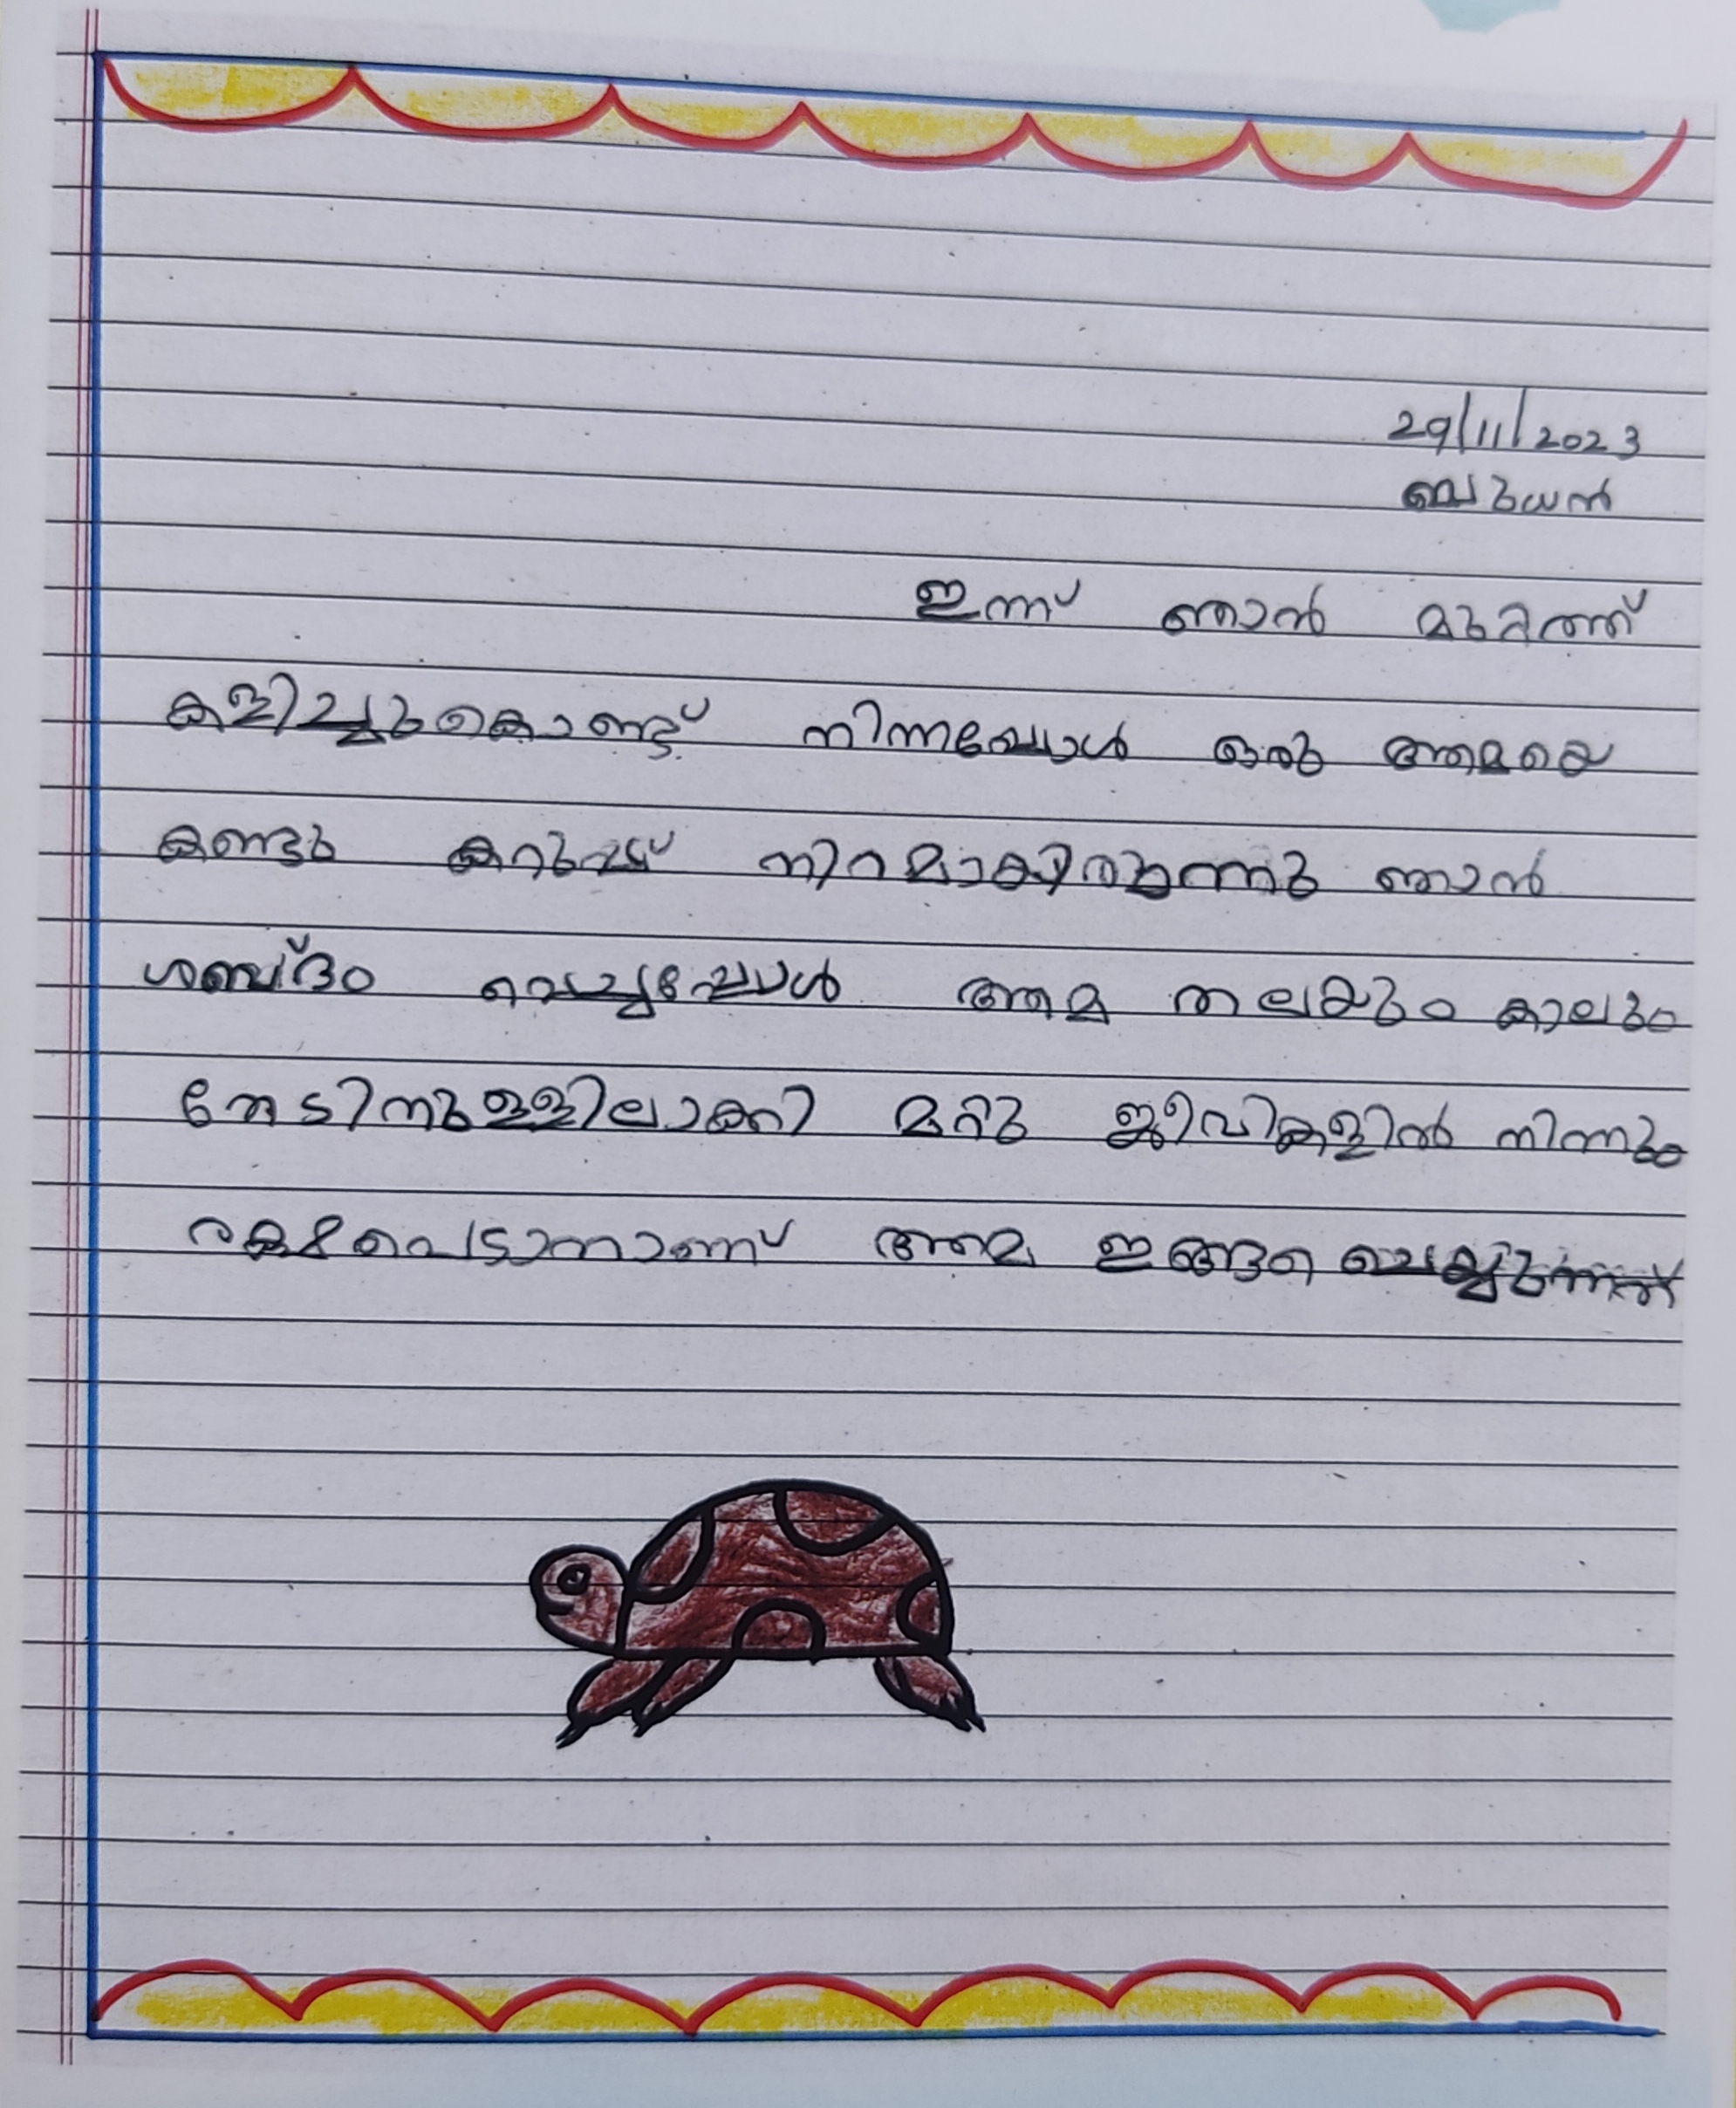 29/11/2023
ബുധൻ
ഇന്ന് ഞാൻ മുറ്റത്ത്
കളിച്ചുകൊണ്ട് നിന്നപ്പോൾ ഒരു ആമയെ
കണ്ടു കറുപ്പ് നിറമാകിരുന്നു ഞാൻ
ശബ്ദം വെച്ചപ്പോൾ ആമ തലയും കാലും
തേടിനുള്ളിലാക്കി മറ്റു ജീവികളിൽ നിന്നും
രക്ഷപെടാനാണ് ആമ ഇങ്ങനെ ചെയ്യുന്നത്